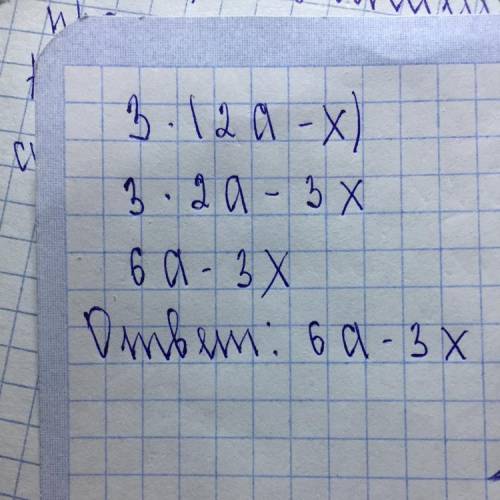 3 · (2a - x)
3 · 2a - 3x
6a - 3x
Ответ: 6a - 3x